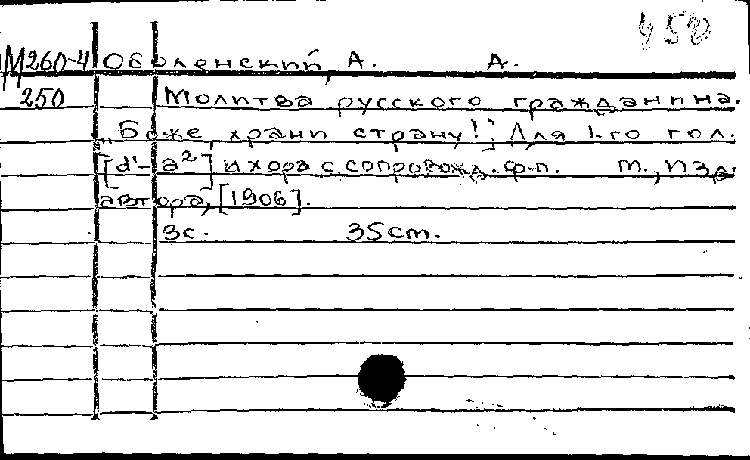 450
М260-4 Оболенский, А. А.
250 Молитва русского гражданина.
„Боже, храни страну!“; Для 1-го гол.
[d'-a²] и хора с сопровожд. ф-п. М., изд.
автора, [1906].
3с. 35cm.